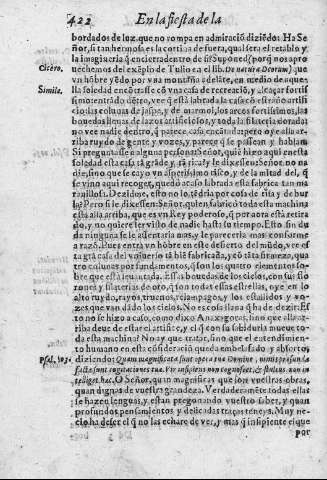 422 En la fiesta de la
bordados de luz, que no rompa en admiració diziẽdo: Ha Se
ñor, si tan hermosa es la cortina de fuera, qual sera el retablo y
la imaginería q̃ encierra dentro de si? Suponed (porq̃ nos apro
Cicero. uechemos del exẽplo de Tulio en el lib. De natura Deorum) que
vn hõbre yẽdo por vna montaña adelãte, en medio de aque-
Simile. lla soledad encõtrasse cõ vna casa de recreació, y alcaçar fortis
simo: entrado dẽtro, vee q̃ està labrada la casa cõ estraño artifi
cio, las colunas de jaspe, y de marmol, los arcos fortissimos, las
bouedas llenas de lazos artificiosos, y toda
no vee nadie dentro, q̃ parece casa encãtada: pero oye alla arri
ba ruydo de gente y vozes, y parece q̃ se passean y hablan.
Si preguntasse a alguna persona: Señor, quiẽ hizo aqui en esta
soledad esta casa tã grãde y tã rica? y le dixessen: Señor no na
die, sino que se cayo vn aspertissimo risco, y de la mitad del, q̃
se vino aqui recoger, quedò assi labrada esta fabrica tan ma
rauillosa. Dezidme, esto no lo tẽdria por cosa de risa y de bur
la? Pero si le dixessen: Señor, quien fabricò toda esta machina
està alla arriba, que es vn Rey poderoso, q̃ por aora està retira
do, y no quiere ser visto de nadie hasta su tiempo. Esto sin du
da ninguna se le assentarìa mas, y le pareceria mas conforme
a razõ. Pues entra vn hõbre en este desierto del mũdo, vee es
ta grã casa del vniuerso tã biẽ fabricada, y cõ tãta firmeza, qua
tro colunas por fundamentos, q̃ son los quatro elementos so-
bre que està leuantada. Essas bouedas de los cielos, con sus fio
rones y filaterias de oro, q̃ son todas essas estrellas, oye en lo
alto ruydo, rayos, truenos, relampagos, y los estallidos y vo-
zes que van dado los cielos. No es cosa llana q̃ ha de dezir: Es
to no se hizo a caso, como dixo Anaxagoras, sino que alla arri
ba deue de estar el artifice, y el q̃ con su sabiduria mueue to-
da esta machina? No ay que tratar, sino que el entendimien-
to humano en esta cõsideració queda embelesado y absorto,
Psal. 103. diziendo: Quam magnificata sunt opera tua Domine, nimis profunda
factæ sunt cogitationes tuæ. Vir insipiens non cognoscet, & stultus non in
telliget hæc. O Señor, quan magnificas que son vuestras obras,
quan dignas de vuestra grandeza. Verdaderamẽte todas ellas
se hazen lenguas, y estan pregonando vuestro saber, y quan
profundos pensamientos y delicadas traças teneys. Muy ne-
cio ha de ser el q̃ no las echare de ver, y mas q̃ insipiente el que
por